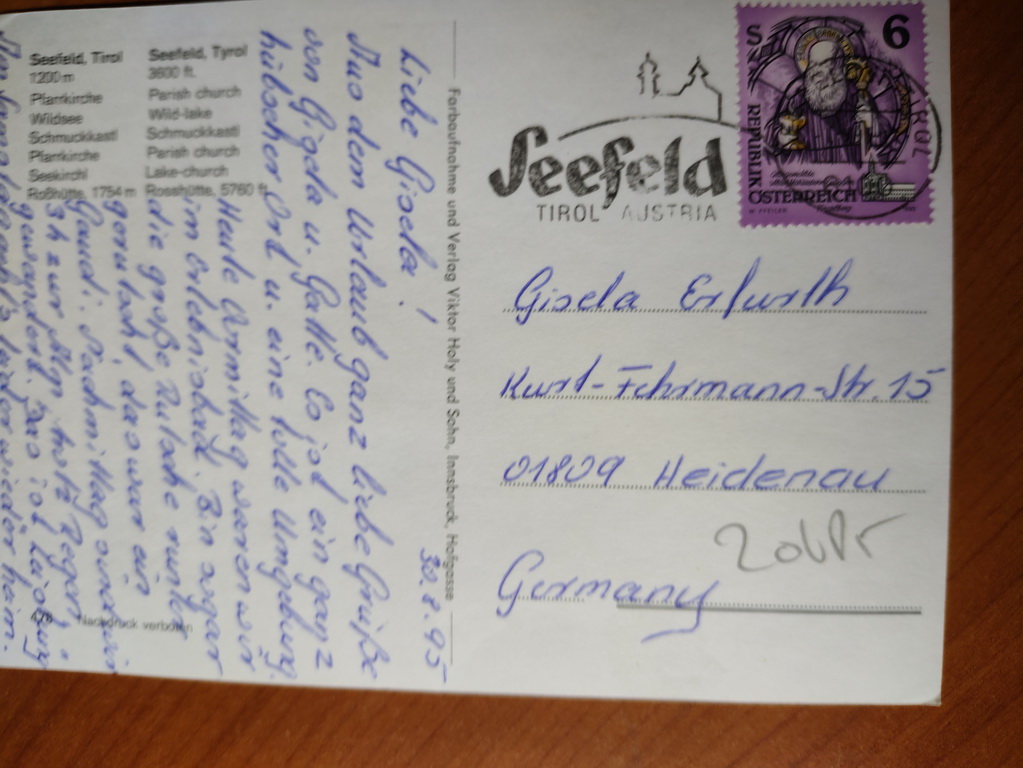 Seefeld, Tirol
1200 m
Pfarrkirche
Wildsee
Schmuckkastl
Pfarrkirche
Seekirchl
Roßhütte, 1754 m
Seefeld, Tyrol
3600 ft.
Parish church
Wild-lake
Schmuckkastl
Parish church
Lake-church
Rosshütte, 5760 ft.
30.8.95
Liebe Gisela!
Aus dem Urlaub ganz liebe Grüße
von Gisela u. Gatte. Es ist ein ganz
hübscher Ort u. eine tolle Umgebung.
Heute Vormittag waren wir
im Erlebnisbad. Bin sogar
die große Rutsche runter
gerutscht, das war ein
Gaudi. Nachmittag sind wir
3h zur Alm trotz Regen
gewandert. Das ist Leistung
Am Samstag geht's leider wieder heim.
Nachdruck verboten
Farbaufnahme und Verlag Viktor Holy und Sohn, Innsbruck, Hofgasse
Seefeld
TIROL AUSTRIA
S 6
REPUBLIK
ÖSTERREICH
TIROL
Gisela Erfurth
Kurt-Fehrmann-Str. 15
01809 Heidenau
Germany